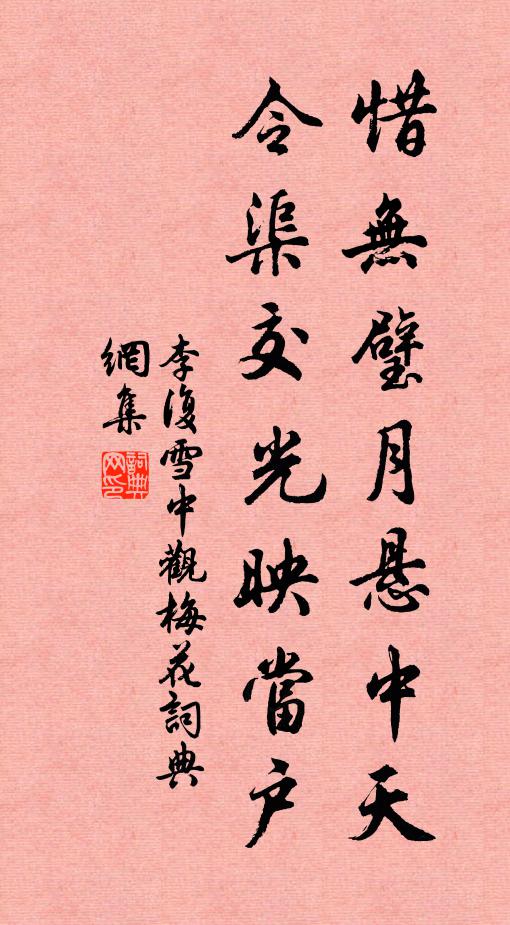 惜無璧月悬中天
令渠交光映當户
李復雪中觀梅花詞典
網集
詞典網印